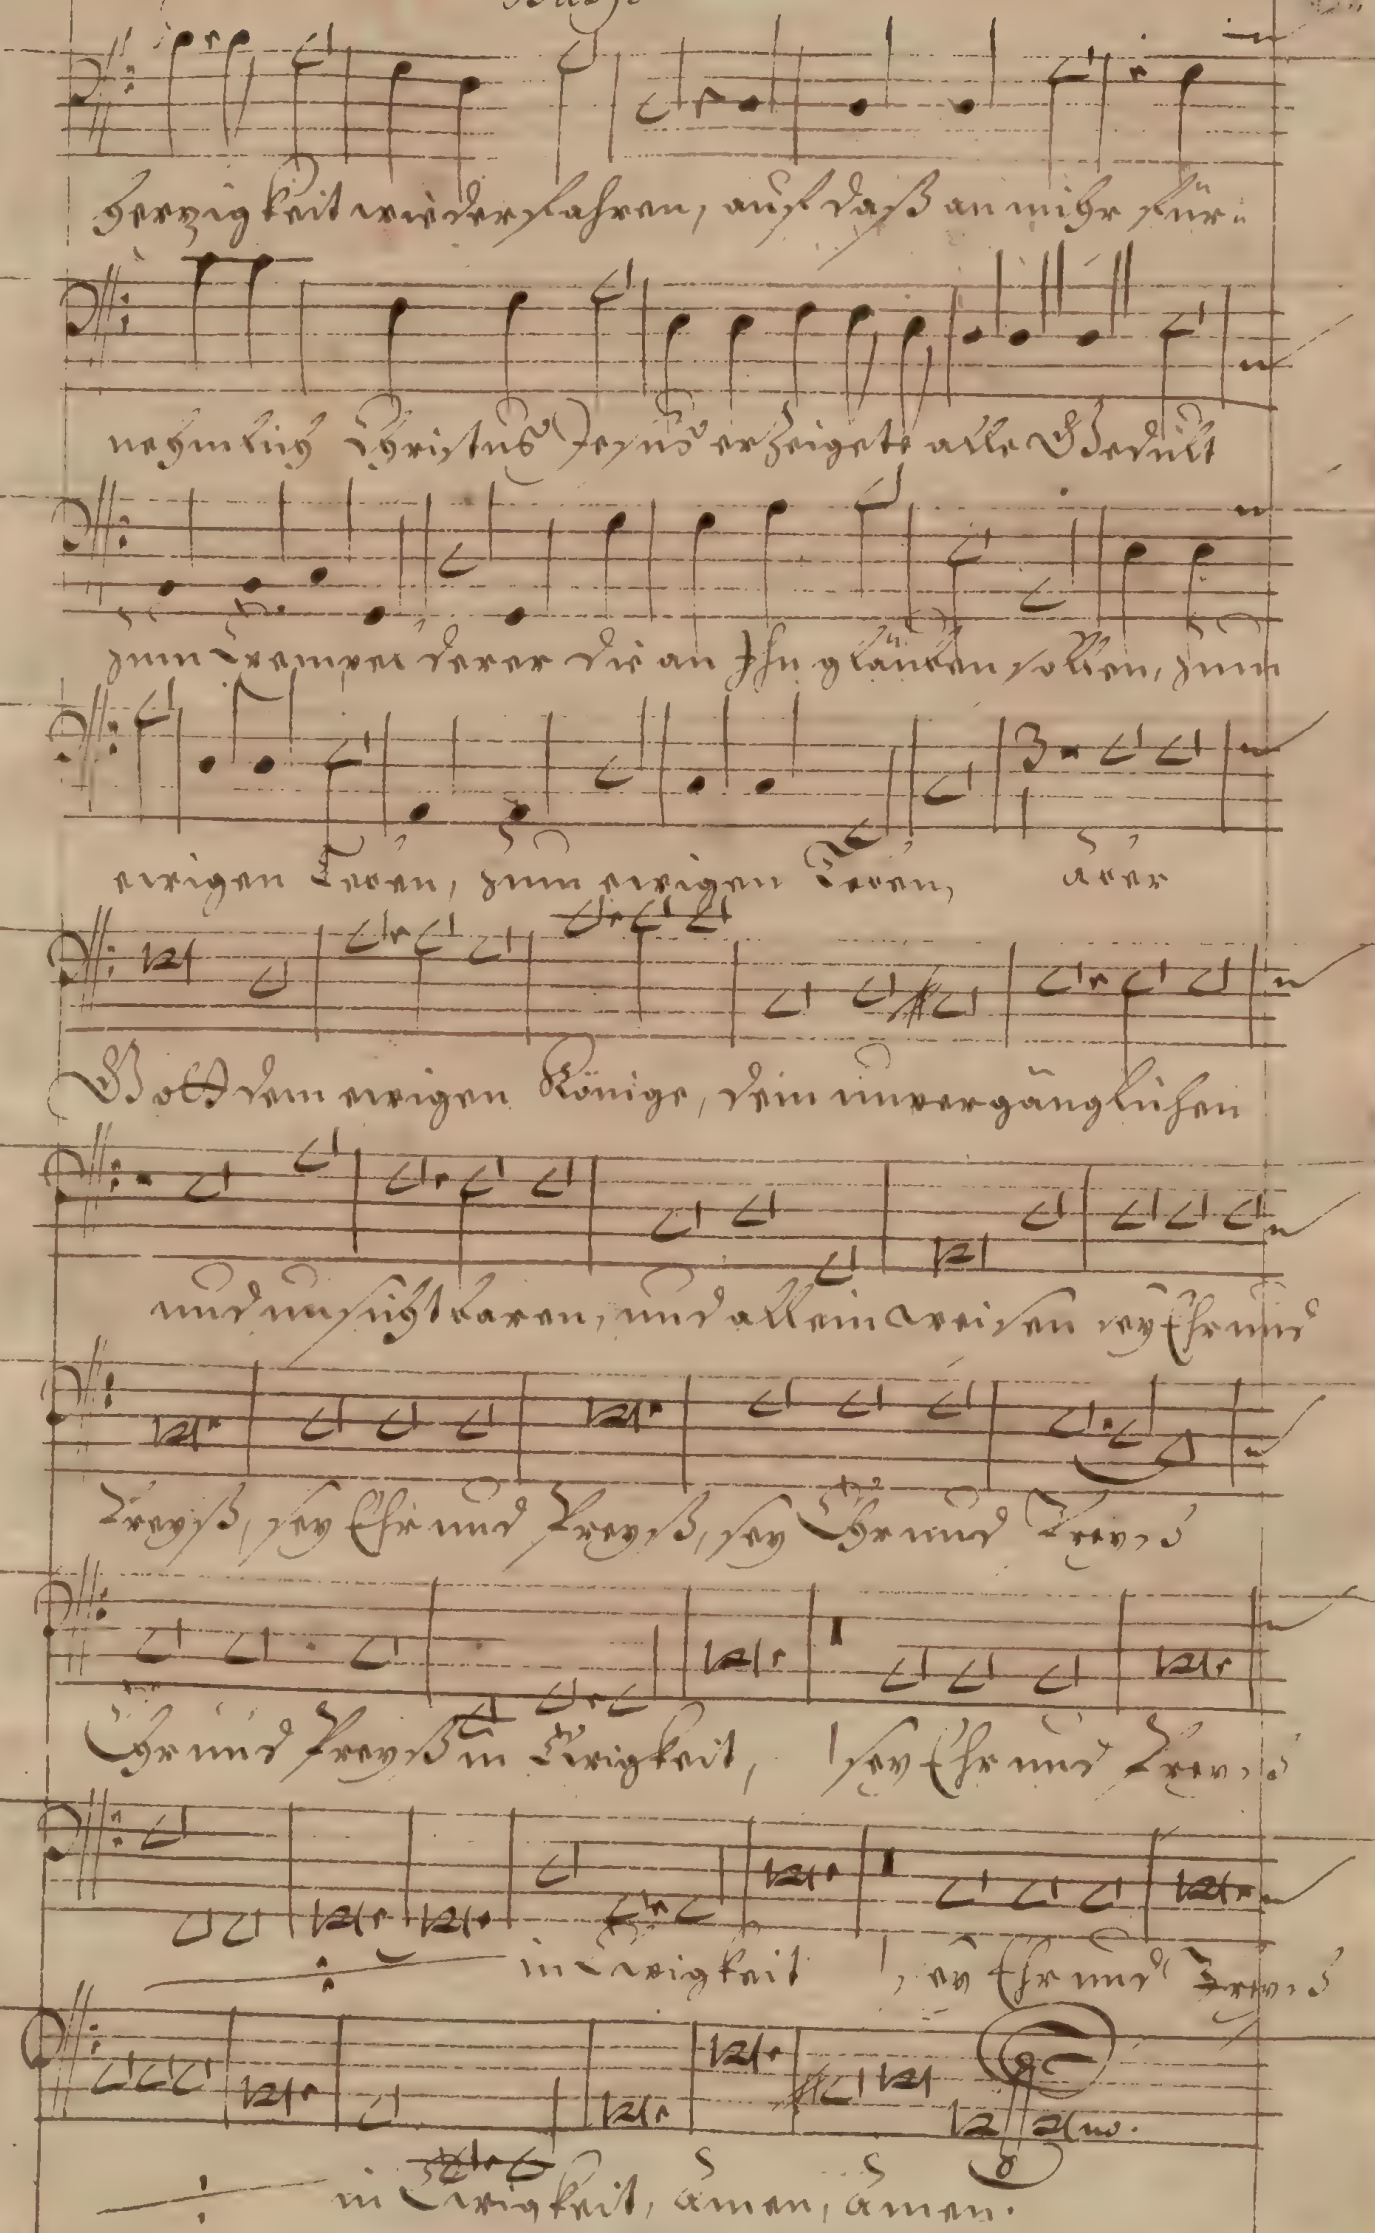 hertzigkeit wiederfahren, auf daß an mihr für=
nehmlich Christus Jesus erzeigete alle Gedult
zum Exempel derer die an Ihn gläuben sollen, zum
ewigen Leben, zum ewigen Leben, aber
3
Gott dem ewigen Könige, dem unvergänglichen
und unsichtbaren, und allein weisen sey Ehr und
Preyß, sey Ehr und Preyß, sey Ehr und Preyß
Ehr und Preyß in Ewigkeit, sey Ehr und Preyß
in Ewigkeit, sey Ehr und Preyß
in Ewigkeit, Amen, Amen.